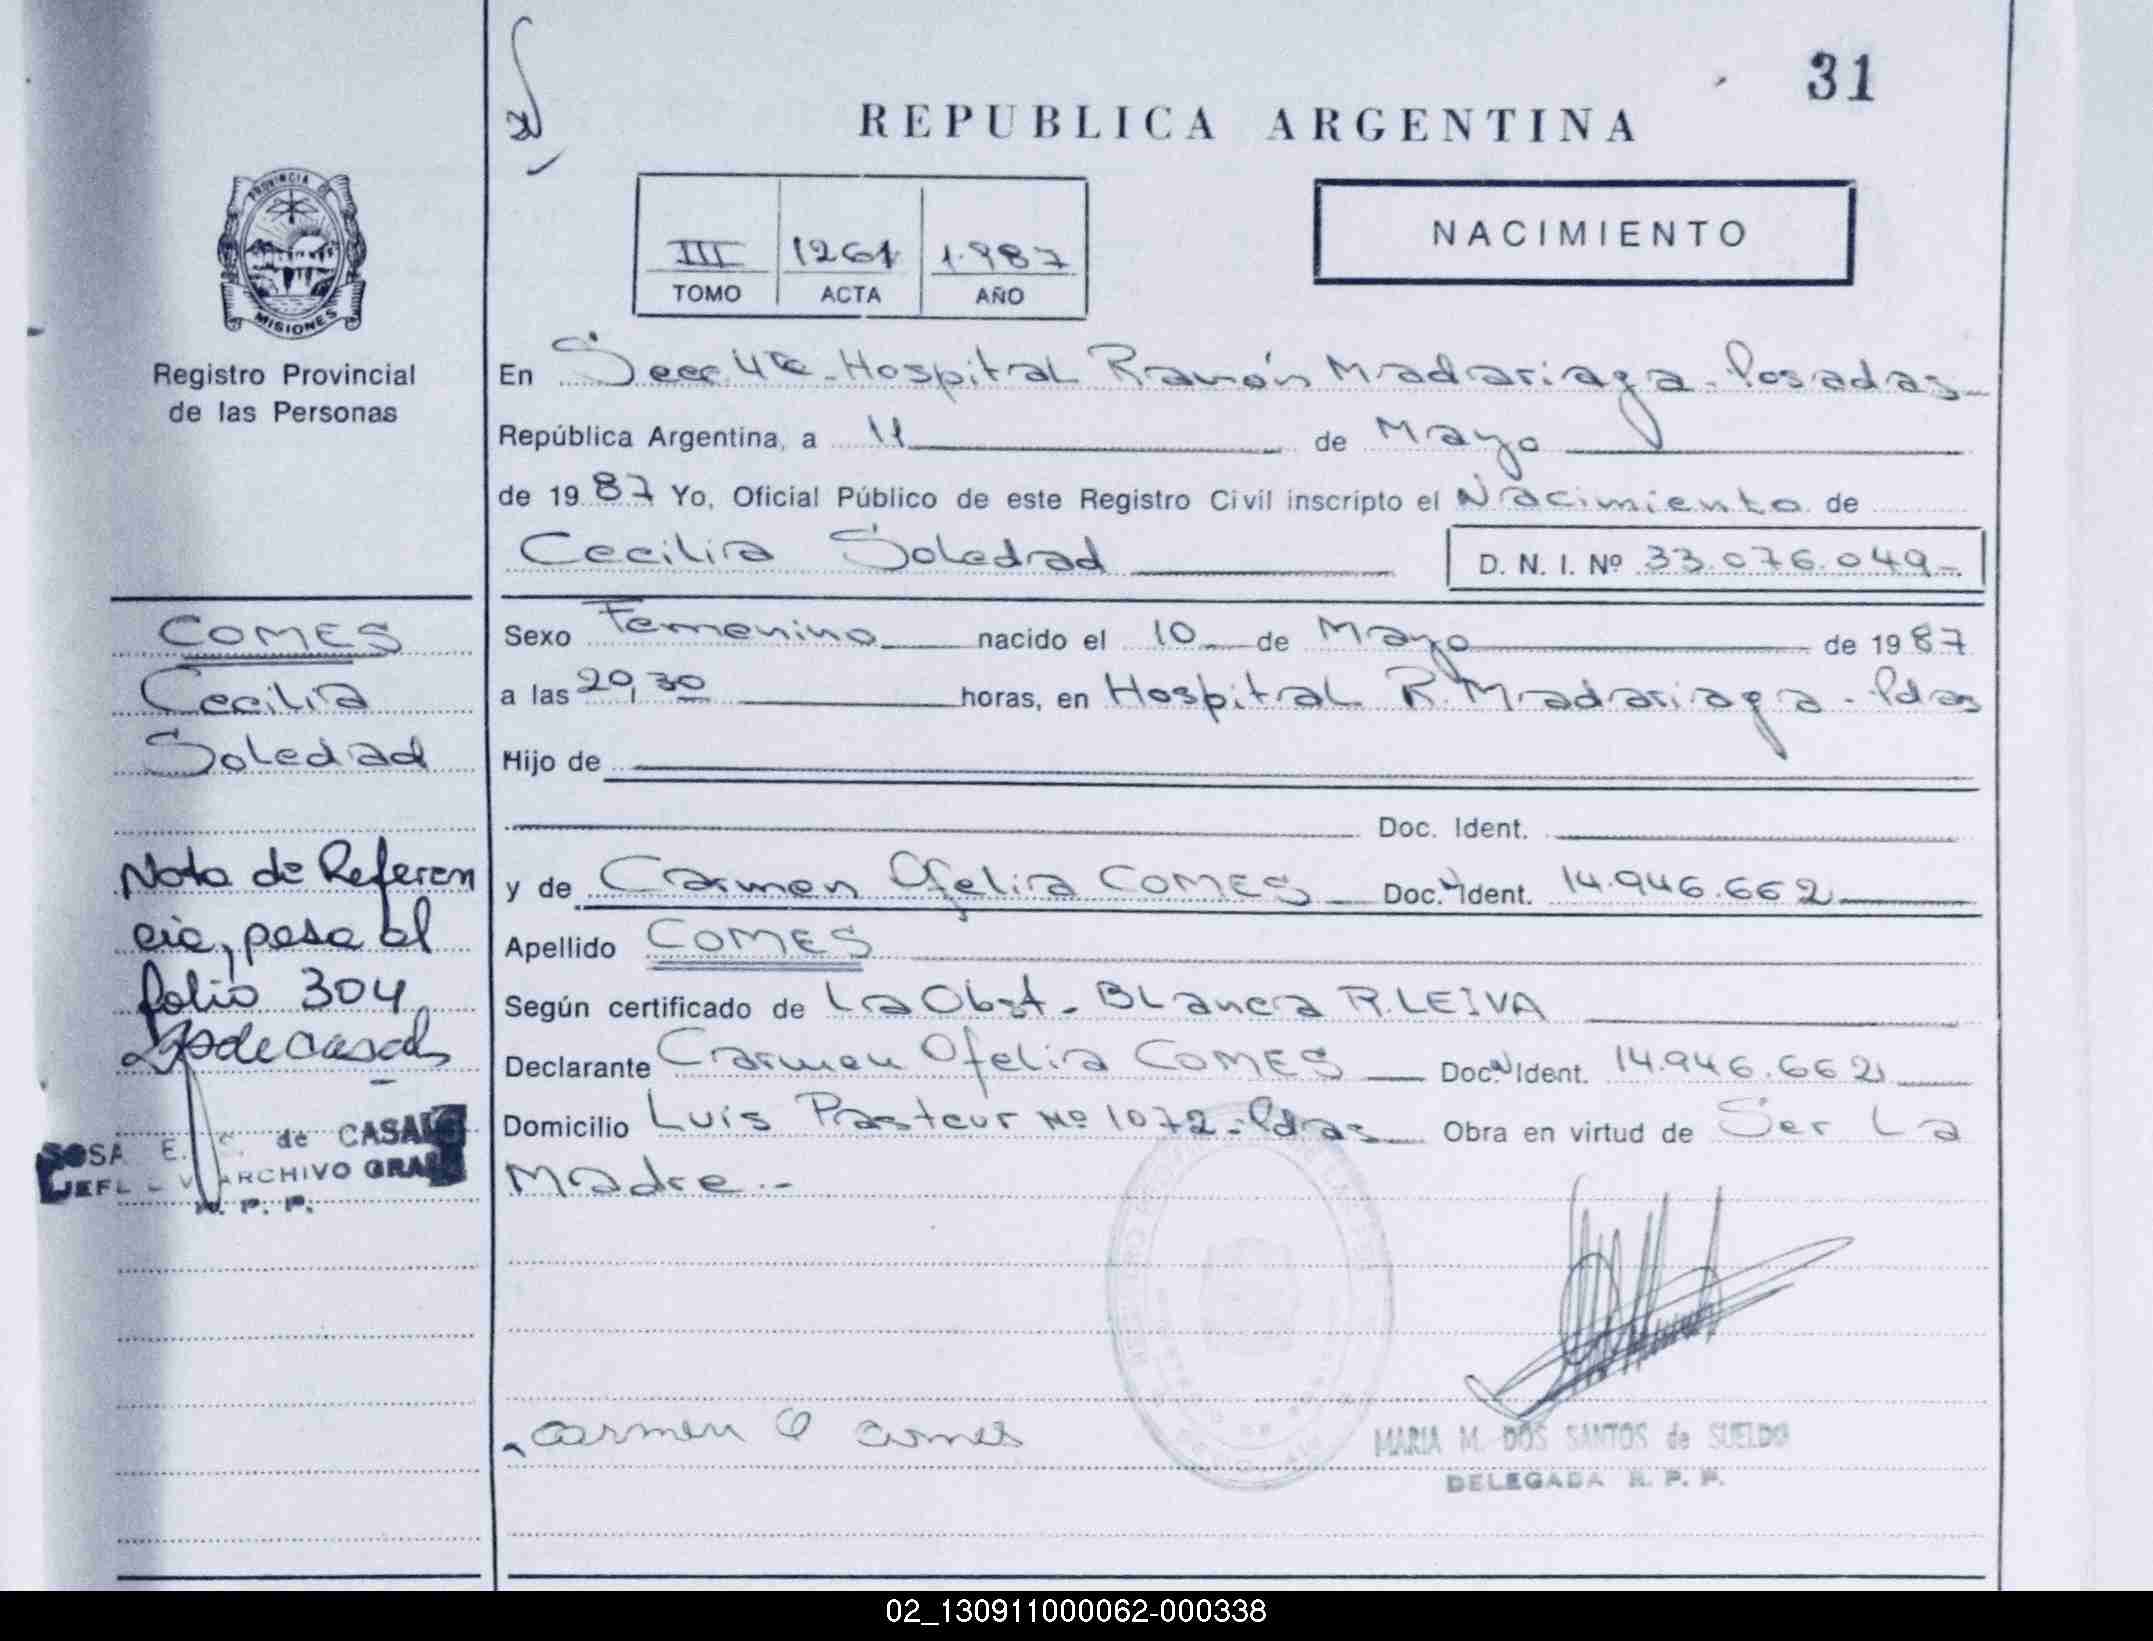 31
REPUBLICA ARGENTINA
NACIMIENTO
III 1261 1.987
TOMO ACTA AÑO
PROVINCIA DE
MISIONES
Registro Provincial
de las Personas
En Secc. 4ta. Hospital Ramón Madariaga - Posadas
República Argentina, a 11 de Mayo
de 19 87 Yo, Oficial Público de este Registro Civil inscripto el Nacimiento de
Cecilia Soledad D. N. I. Nº 33.076.049-
Sexo Femenino nacido el 10 de Mayo de 19 87
a las 20,30 horas, en Hospital R. Madariaga - Pdas
Hijo de
Doc. Ident.
y de Carmen Ofelia COMES Doc. Ident. 14.946.662
Apellido COMES
Según certificado de La Obst. BLanca R. LEIVA
Declarante Carmen Ofelia COMES Doc. Ident. 14.946.662
Domicilio Luis Pasteur Nº 1072 - Pdas Obra en virtud de Ser La
Madre.-
COMES
Cecilia
Soledad
Nota de Referen
cia, pasa al
folio 304
SOSA E. C. de CASALS
ARCHIVO GRAL
R. P. P.
Carmen O Comes
MARIA M. DOS SANTOS de SUELDO
DELEGADA R. P. P.
02_130911000062-000338